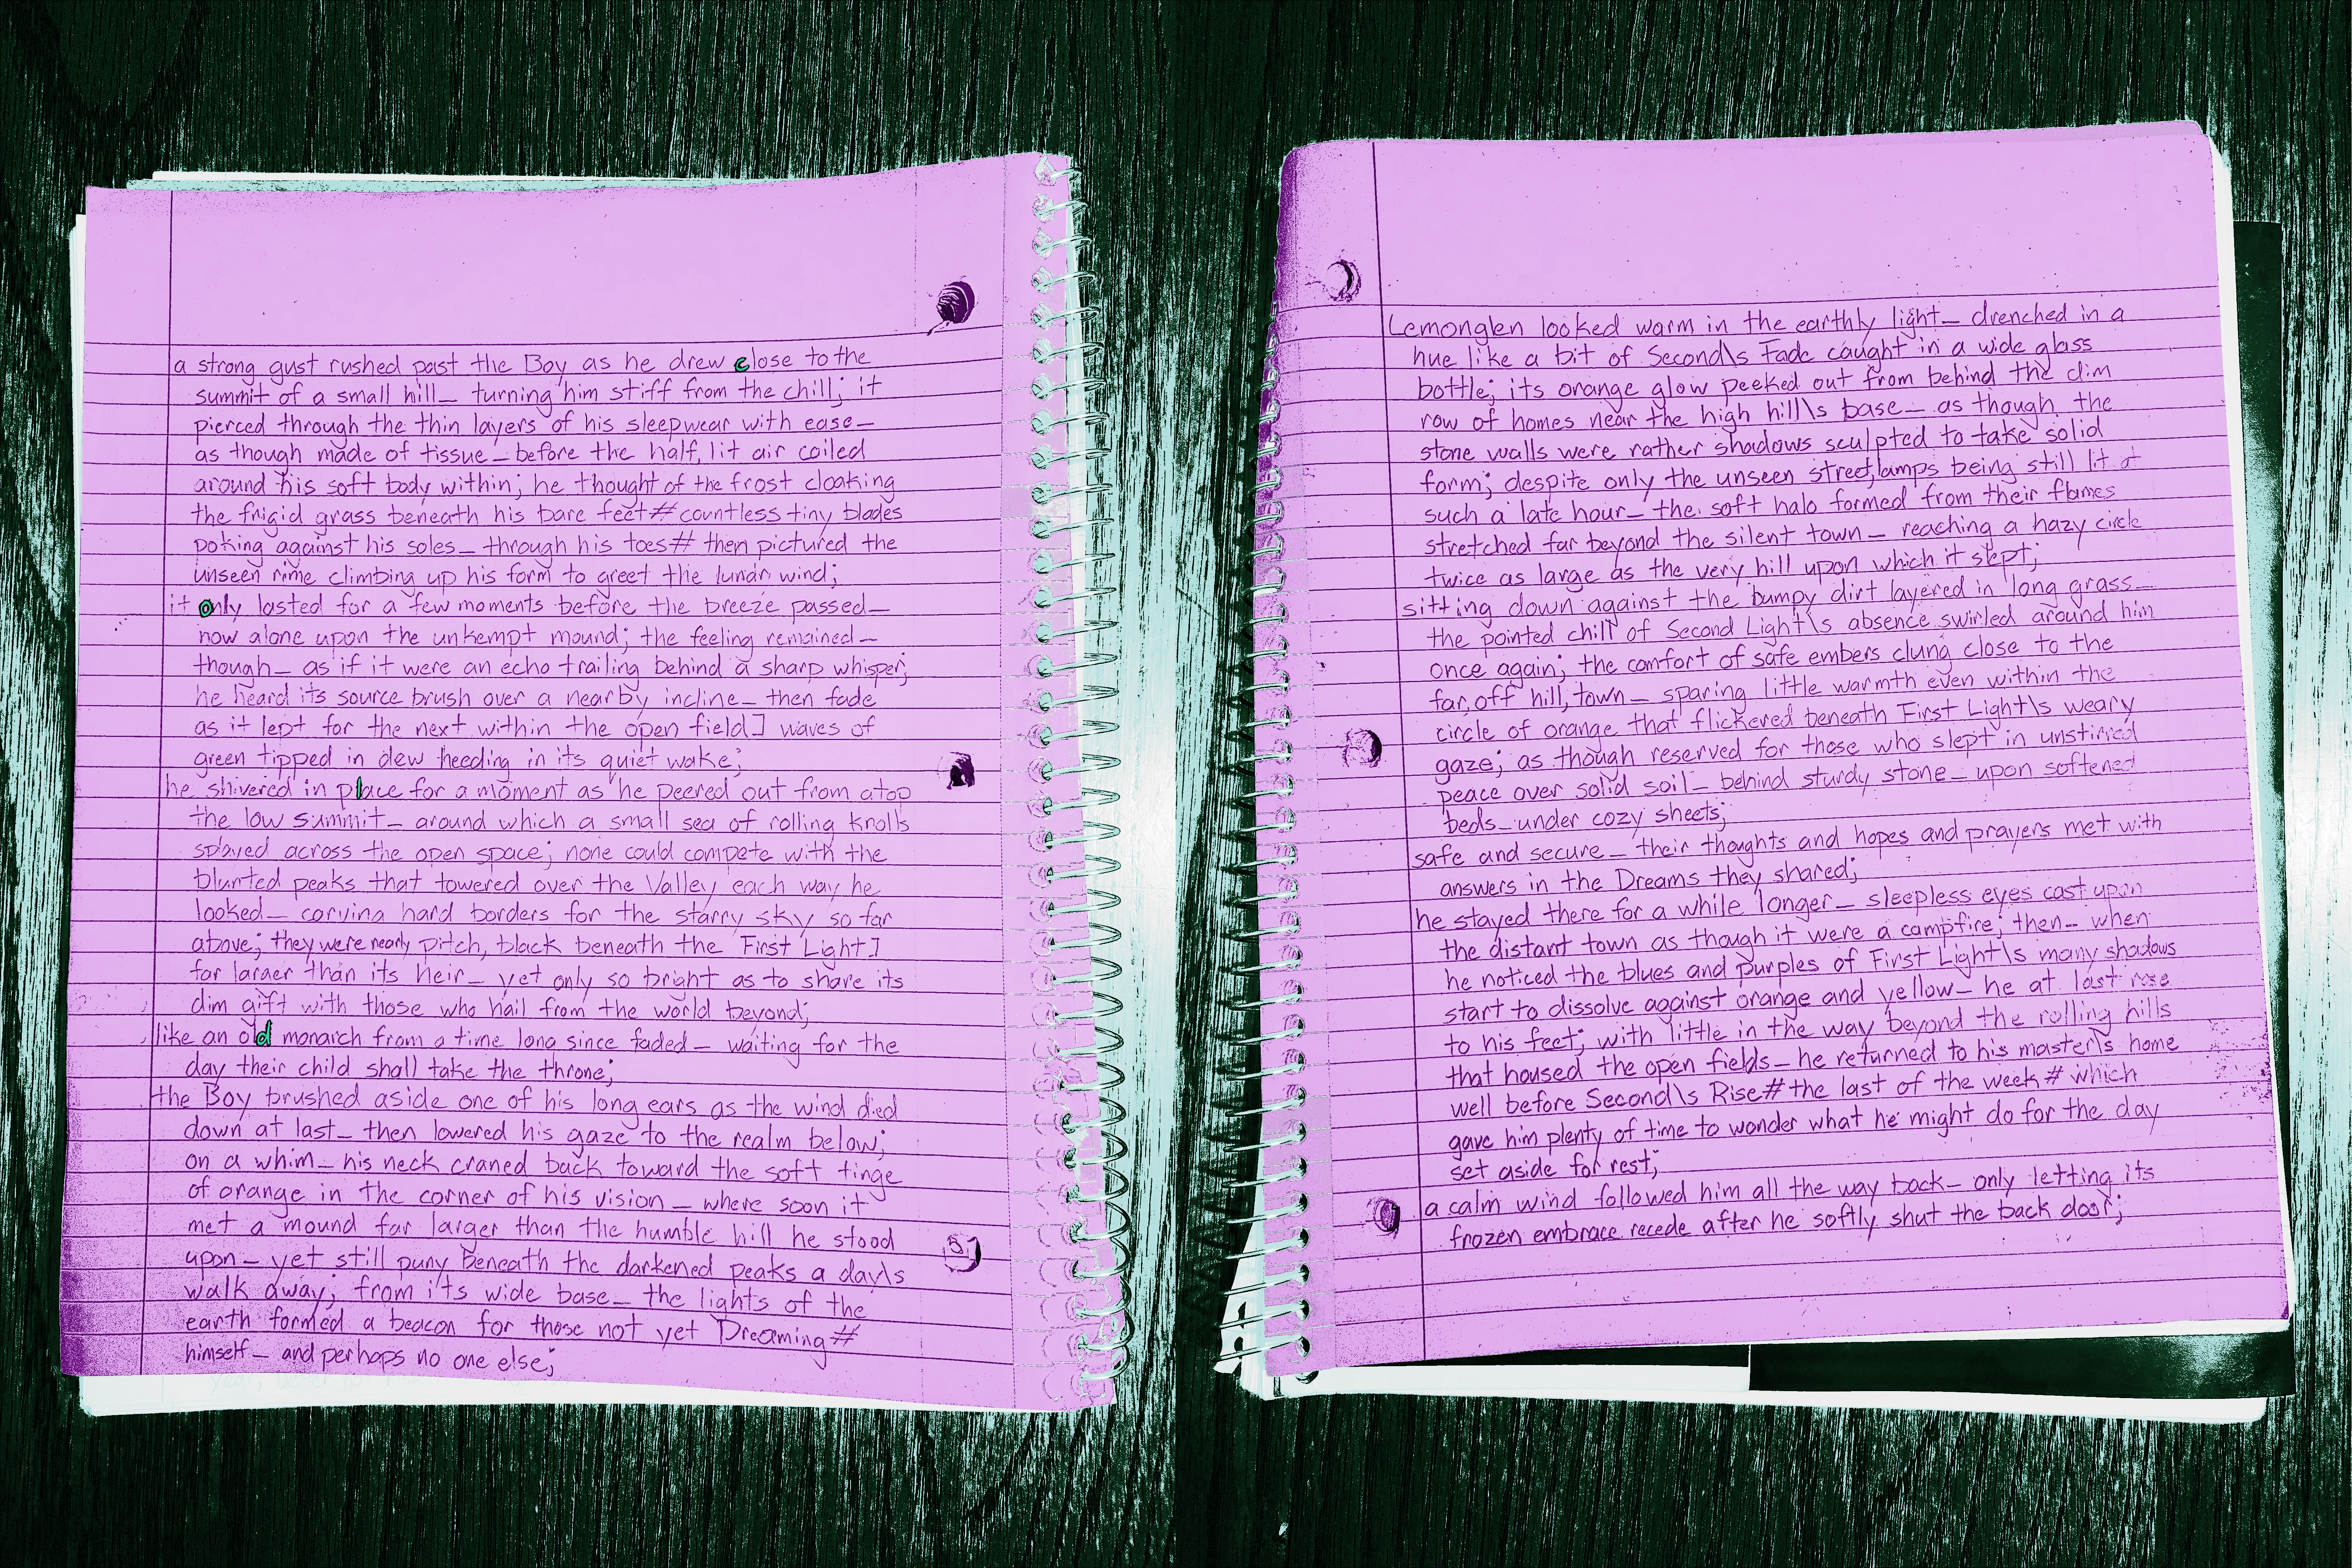 a strong gust rushed past the Boy as he drew close to the
summit of a small hill_ turning him stiff from the chill; it
pierced through the thin layers of his sleepwear with ease_
as though made of tissue_ before the half, lit air coiled
around his soft body within; he thought of the frost cloaking
the frigid grass beneath his bare feet# countless tiny blades
poking against his soles_ through his toes# then pictured the
unseen rime climbing up his form to greet the lunar wind;
it only lasted for a few moments before the breeze passed_
now alone upon the unkempt mound; the feeling remained_
though_ as if it were an echo trailing behind a sharp whisper;
he heard its source brush over a nearby incline_ then fade
as it lept for the next within the open field] waves of
green tipped in dew heeding in its quiet wake;
he shivered in place for a moment as he peered out from atop
the low summit_ around which a small sea of rolling knolls
splayed across the open space; none could compete with the
blunted peaks that towered over the Valley each way he
looked_ carving hard borders for the starry sky so far
above; they were nearly pitch, black beneath the First Light]
far larger than its heir_ yet only so bright as to share its
dim gift with those who hail from the world beyond;
like an old monarch from a time long since faded_ waiting for the
day their child shall take the throne;
the Boy brushed aside one of his long ears as the wind died
down at last_ then lowered his gaze to the realm below;
on a whim_ his neck craned back toward the soft tinge
of orange in the corner of his vision_ where soon it
met a mound far larger than the humble hill he stood
upon_ yet still puny beneath the darkened peaks a day\s
walk away; from its wide base_ the lights of the
earth formed a beacon for those not yet Dreaming#
himself_ and perhaps no one else;
Lemonglen looked warm in the earthly light_ drenched in a
hue like a bit of Second\s Fade caught in a wide glass
bottle; its orange glow peeked out from behind the dim
row of homes near the high hill\s base_ as though the
stone walls were rather shadows sculpted to take solid
form; despite only the unseen street,lamps being still lit at
such a late hour_ the soft halo formed from their flames
stretched far beyond the silent town_ reaching a hazy circle
twice as large as the very hill upon which it slept;
sitting down against the bumpy dirt layered in long grass_
the pointed chill of Second Light\s absence swirled around him
once again; the comfort of safe embers clung close to the
far,off hill,town_ sparing little warmth even within the
circle of orange that flickered beneath First Light\s weary
gaze; as though reserved for those who slept in unstirred
peace over solid soil_ behind sturdy stone_ upon softened
beds_ under cozy sheets;
safe and secure_ their thoughts and hopes and prayers met with
answers in the Dreams they shared;
he stayed there for a while longer_ sleepless eyes cast upon
the distant town as though it were a campfire; then_ when
he noticed the blues and purples of First Light\s many shadows
start to dissolve against orange and yellow_ he at last rose
to his feet; with little in the way beyond the rolling hills
that housed the open fields_ he returned to his master\s home
well before Second\s Rise# the last of the week# which
gave him plenty of time to wonder what he might do for the day
set aside for rest;
a calm wind followed him all the way back_ only letting its
frozen embrace recede after he softly shut the back door;